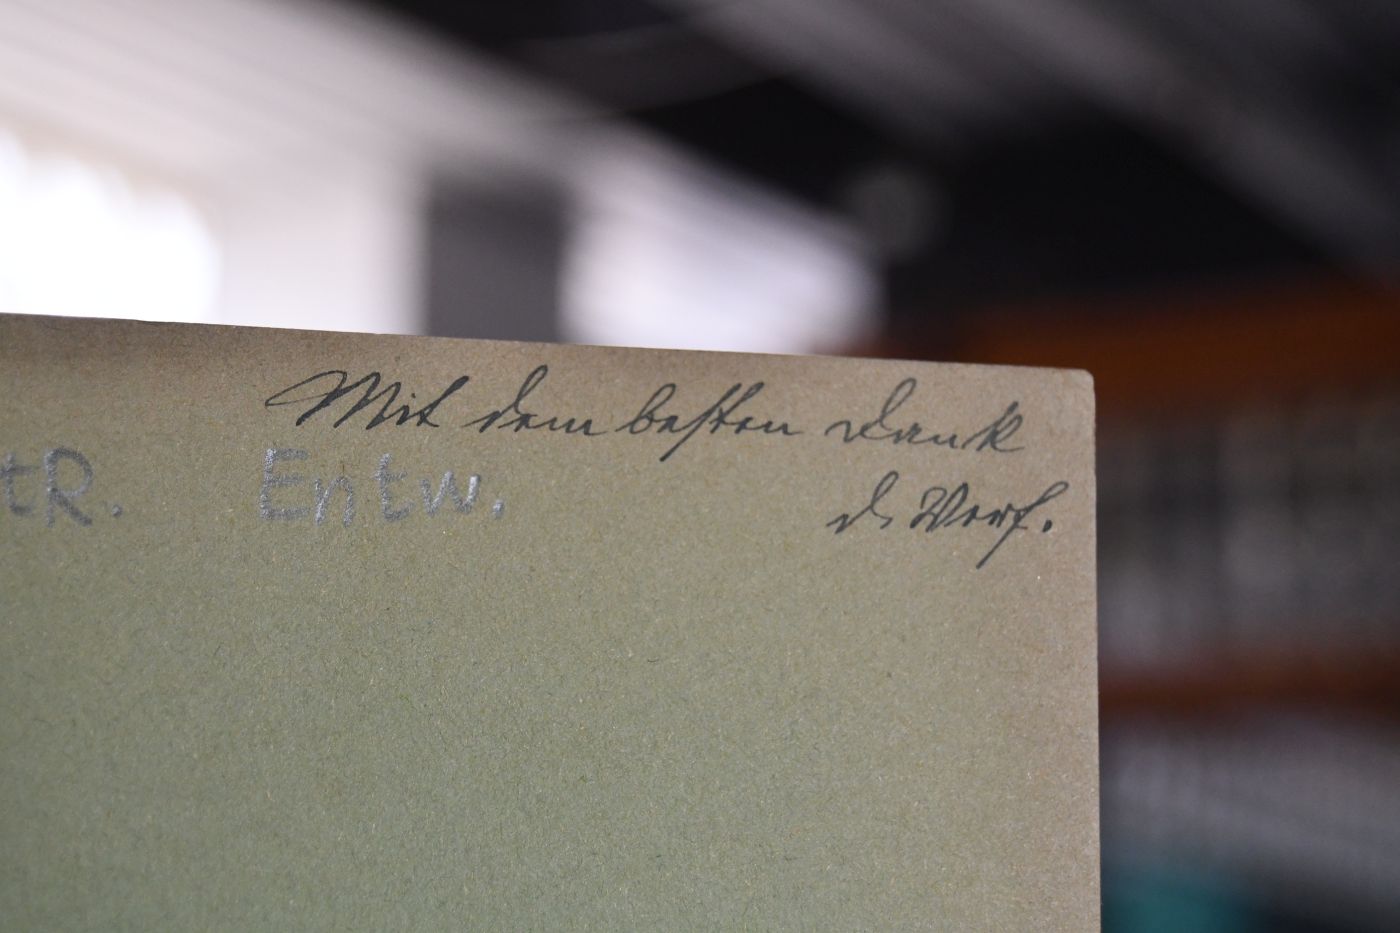 Mit dem besten Dank
d. Verf.
tR. Entw.